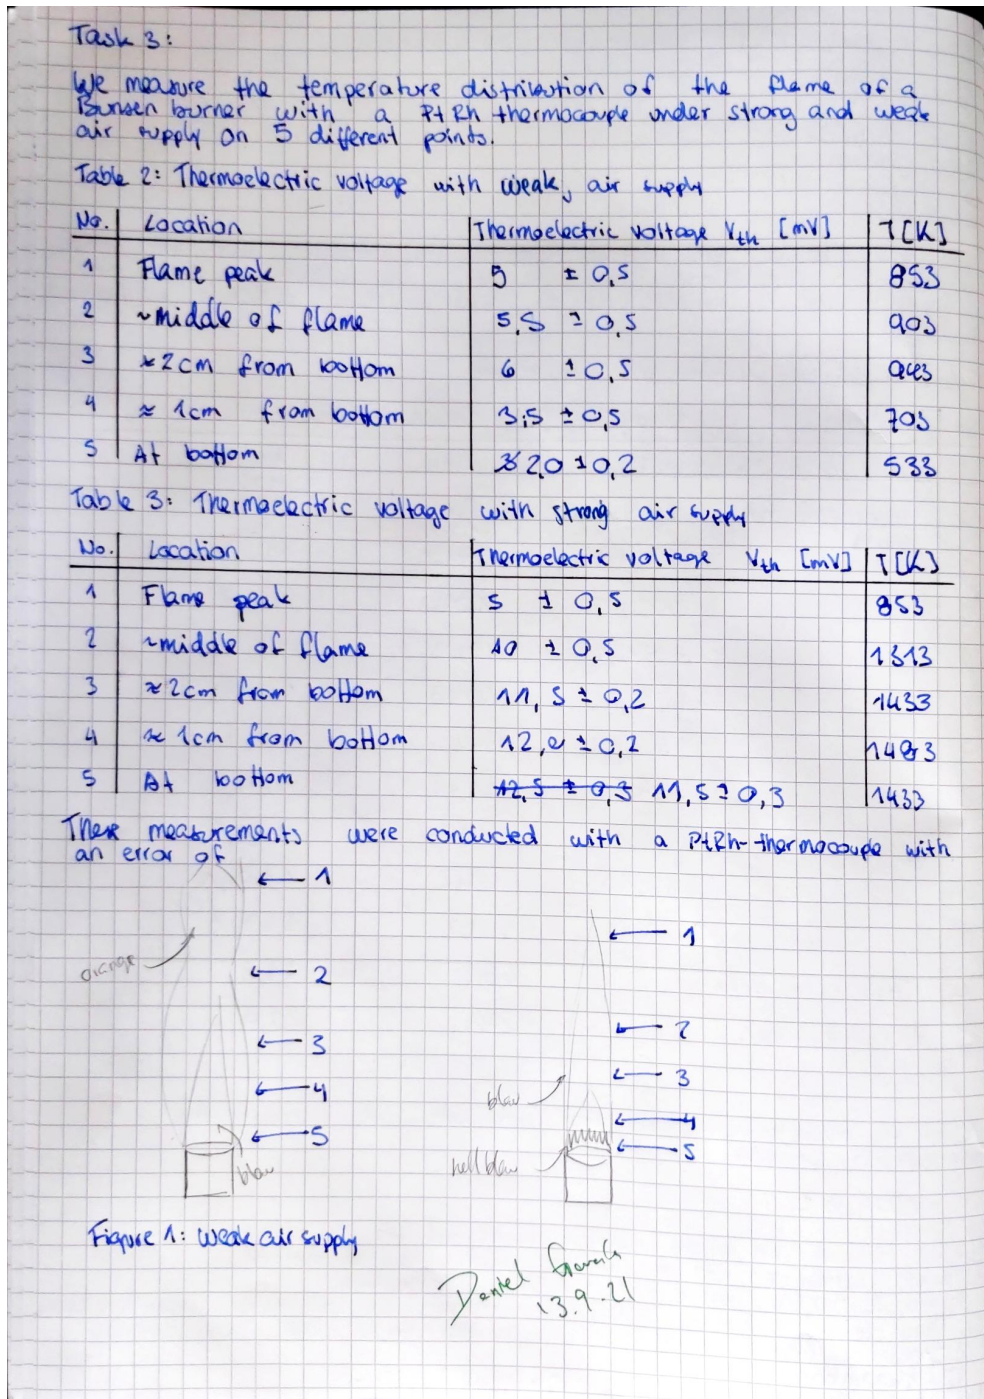 Task 3:
We measure the temperature distribution of the flame of a
Bunsen burner with a PtRh thermocouple under strong and weak
air supply on 5 different points.
Table 2: Thermoelectric voltage with weak, air supply
No. Location Thermoelectric voltage Vth [mV] T[K]
1 Flame peak 5 ± 0,5 853
2 ~middle of flame 5,5 ± 0,5 903
3 ≈2cm from bottom 6 ± 0,5 943
4 ≈ 1cm from bottom 3,5 ± 0,5 703
5 At bottom 2,0 ± 0,2 533
Table 3: Thermoelectric voltage with strong air supply
No. Location Thermoelectric voltage Vth [mV] T[K]
1 Flame peak 5 ± 0,5 853
2 ~middle of flame 10 ± 0,5 1313
3 ≈2cm from bottom 11,5 ± 0,2 1433
4 ≈ 1cm from bottom 12,0 ± 0,2 1483
5 At bottom 12,5 ± 0,3 11,5 ± 0,3 1433
These measurements were conducted with a PtRh-thermocouple with
an error of
1
orange
2
3
4
5
blau
1
2
3
blau
4
5
hellblau
Figure 1: Weak air supply
Daniel
13.9.21